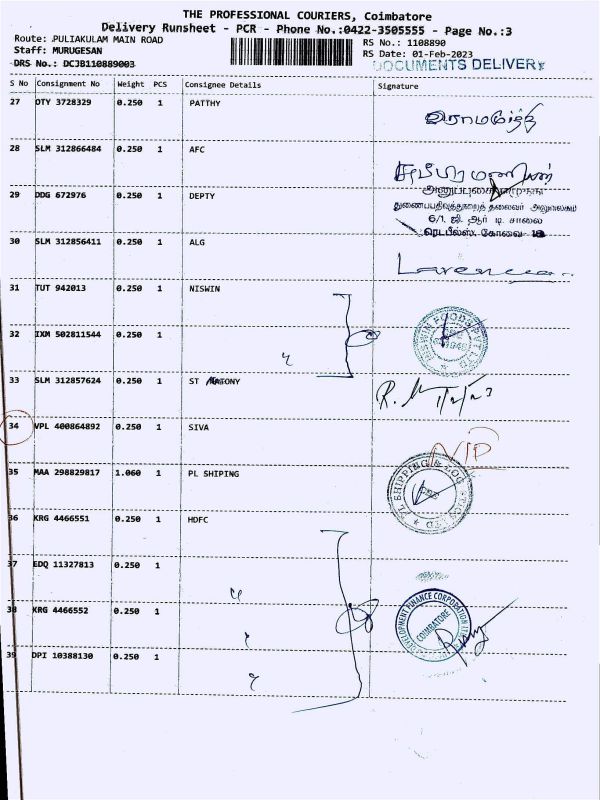 THE PROFESSIONAL COURIERS, Coimbatore
Delivery Runsheet - PCR - Phone No.:0422-3505555 - Page No.:3
Route: PULIAKULAM MAIN ROAD RS No.: 1108890
Staff: MURUGESAN RS Date: 01-Feb-2023
DRS No.: DCJB110889003 DOCUMENTS DELIVERY
S No Consignment No Weight PCS Consignee Details Signature
27 OTY 3728329 0.250 1 PATTHY
28 SLM 312866484 0.250 1 AFC
29 DDG 672976 0.250 1 DEPTY
துணைபதிவுத்துறைத் தலைவர் அலுவலகம்
6/1, ஜி. ஆர் டி. சாலை
ரெட்பீல்ஸ், கோவை 18
30 SLM 312856411 0.250 1 ALG
31 TUT 942013 0.250 1 NISWIN
NISWIN FOODS PVT LTD
32 IXM 502811544 0.250 1 "
33 SLM 312857624 0.250 1 ST ANTONY
34 VPL 400864892 0.250 1 SIVA
NIP
35 MAA 298829817 1.060 1 PL SHIPING
PL SHIPPING & LOGISTICS LTD
36 KRG 4466551 0.250 1 HDFC
37 EDQ 11327813 0.250 1 "
38 KRG 4466552 0.250 1 "
DEVELOPMENT FINANCE CORPORATION
COIMBATORE
39 DPI 10388130 0.250 1 "